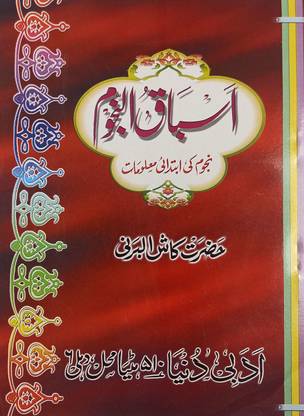 اسباق النجوم
نجوم کی ابتدائی معلومات
حضرت کاش البرنی
ادبی دُنیا ۵۱۰ مٹیا محل دہلی ۶